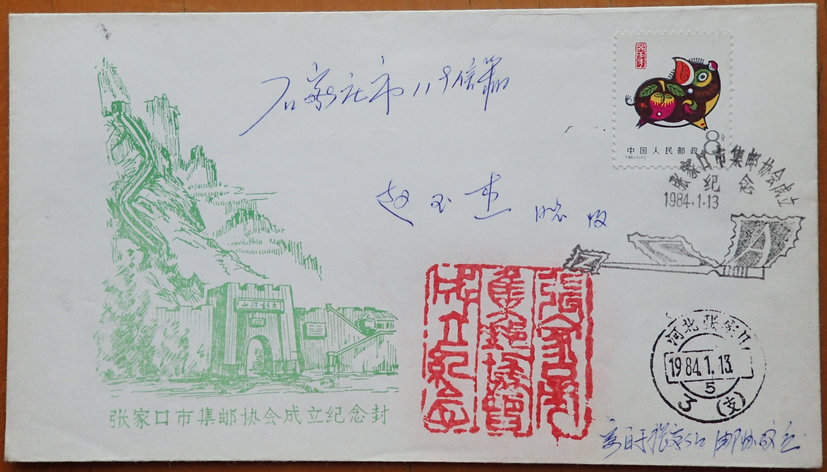 石家庄市119信箱
中国人民邮政
8分
张家口市集邮协会成立
纪念
1984.1.13
赵玉
收
大好河山
張家口
集郵協會
成立紀念
河北张家口
1984.1.13
5
3(支)
张家口市集邮协会成立纪念封
寄自于张家口